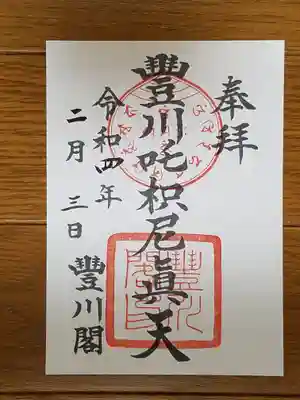 奉拝
豐川吒枳尼眞天
令和四年
二月三日
豐川閣